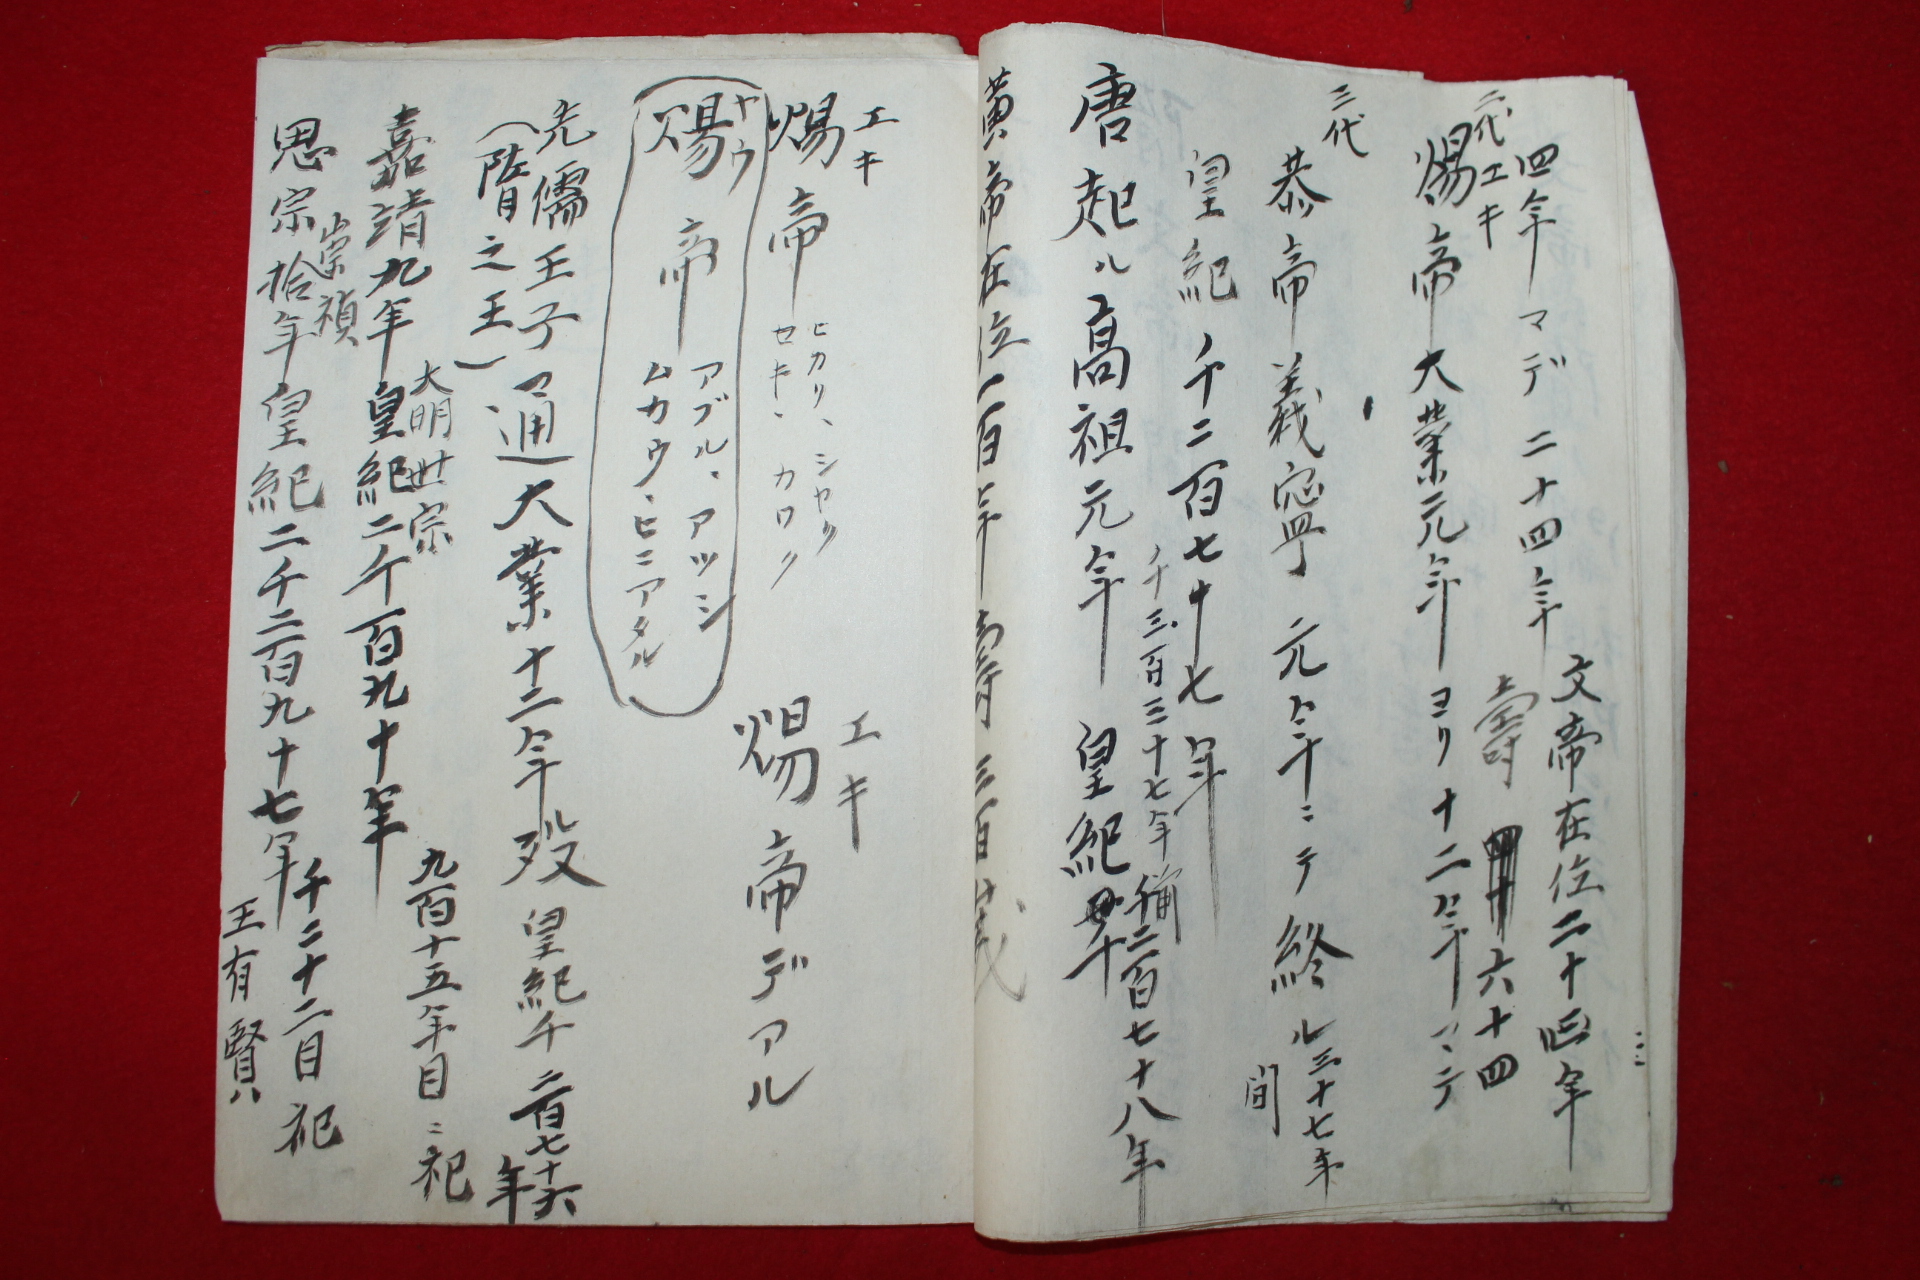 四年マデ二十四年
文帝在位二十四年
壽 六十四
二代
エキ
煬帝大業元年ヨリ十二年マデ
三代
恭帝義寧元年ニテ終ル三十七年
間
皇紀千二百七十七年
千三百三十七年
唐起ル高祖元年 皇紀
千二百七十八年
黄帝在位百年壽三百歳
エキ
煬帝
ヒカリ、シヤク
セキ、カワク
エキ
煬帝デアル
ヤウ
煬帝
アブル、アツシ
ムカウ、ヒニアタル
先儒王子
(隋之王)
通大業十二年歿皇紀千二百七十六年
大明世宗
嘉靖九年皇紀二千百九十年
九百十五年目ニ祀
崇禎
思宗拾年皇紀二千二百九十七年
千二十二目祀
王有賢ハ